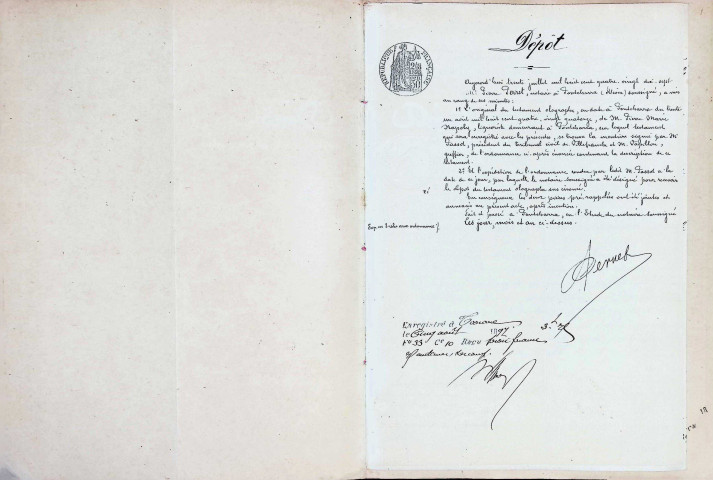 Dépôt
RÉPUBLIQUE FRANÇAISE
Aujourd'hui trente juillet mil huit cent quatre-vingt dix-sept
Me Pierre Perret, notaire à Pontcharra (Rhône) soussigné, a mis
au rang de ses minutes:
1° L'original du testament olographe, en date à Pontcharra du trente
un août mil huit cent quatre-vingt quatorze, de M. Pierre Marie
demeurant à Pontcharra, sur lequel testament
qui sera enregistré avec les présentes, se trouve la mention signée par M.
Lassot, président du Tribunal civil de Villefranche et M. Papillon,
greffier, de l'ordonnance ci-après énoncée contenant la description de ce
testament.
2° Et l'expédition de l'ordonnance rendue par ledit M. Lassot à la
date de ce jour, par laquelle le notaire soussigné a été désigné pour recevoir
le dépôt du testament olographe sus énoncé.
En conséquence les deux pièces pré-rappelées ont été jointes et
annexées au présent acte, après mention.
Fait et passé à Pontcharra, en l'Etude du notaire soussigné
Les jour, mois et an ci-dessus.
Perret
Enregistré à Tarare
le Cinq août 1897.
F° 33 Ce 10 Reçu trois francs